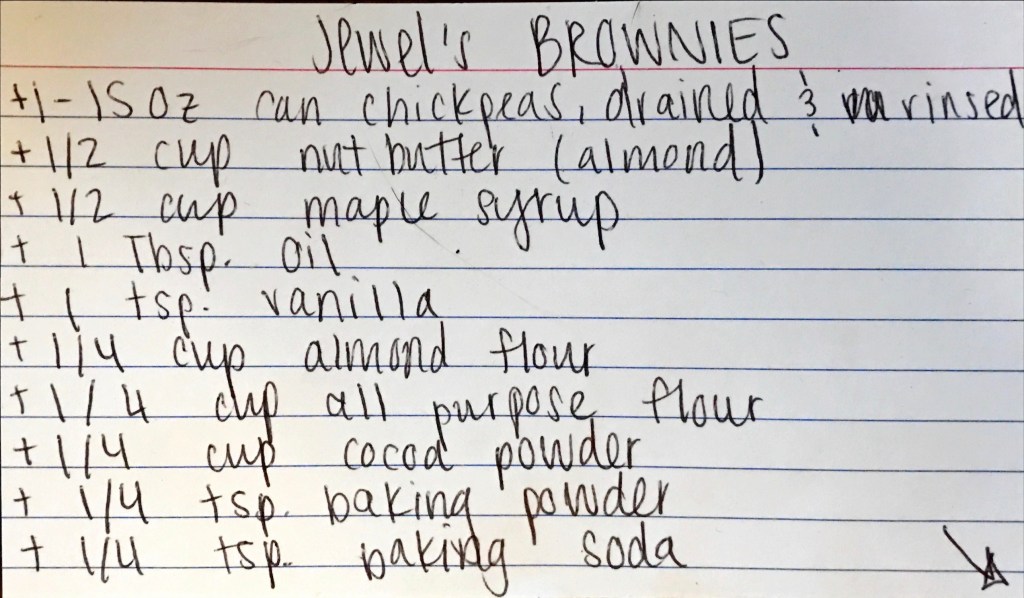 Jewel's BROWNIES
+1-15 Oz can chickpeas, drained & rinsed
+ 1/2 cup nut butter (almond)
+ 1/2 cup maple syrup
+ 1 Tbsp. oil
+ 1 tsp. vanilla
+ 1/4 cup almond flour
+ 1/4 cup all purpose flour
+ 1/4 cup cocoa powder
+ 1/4 tsp. baking powder
+ 1/4 tsp. baking soda